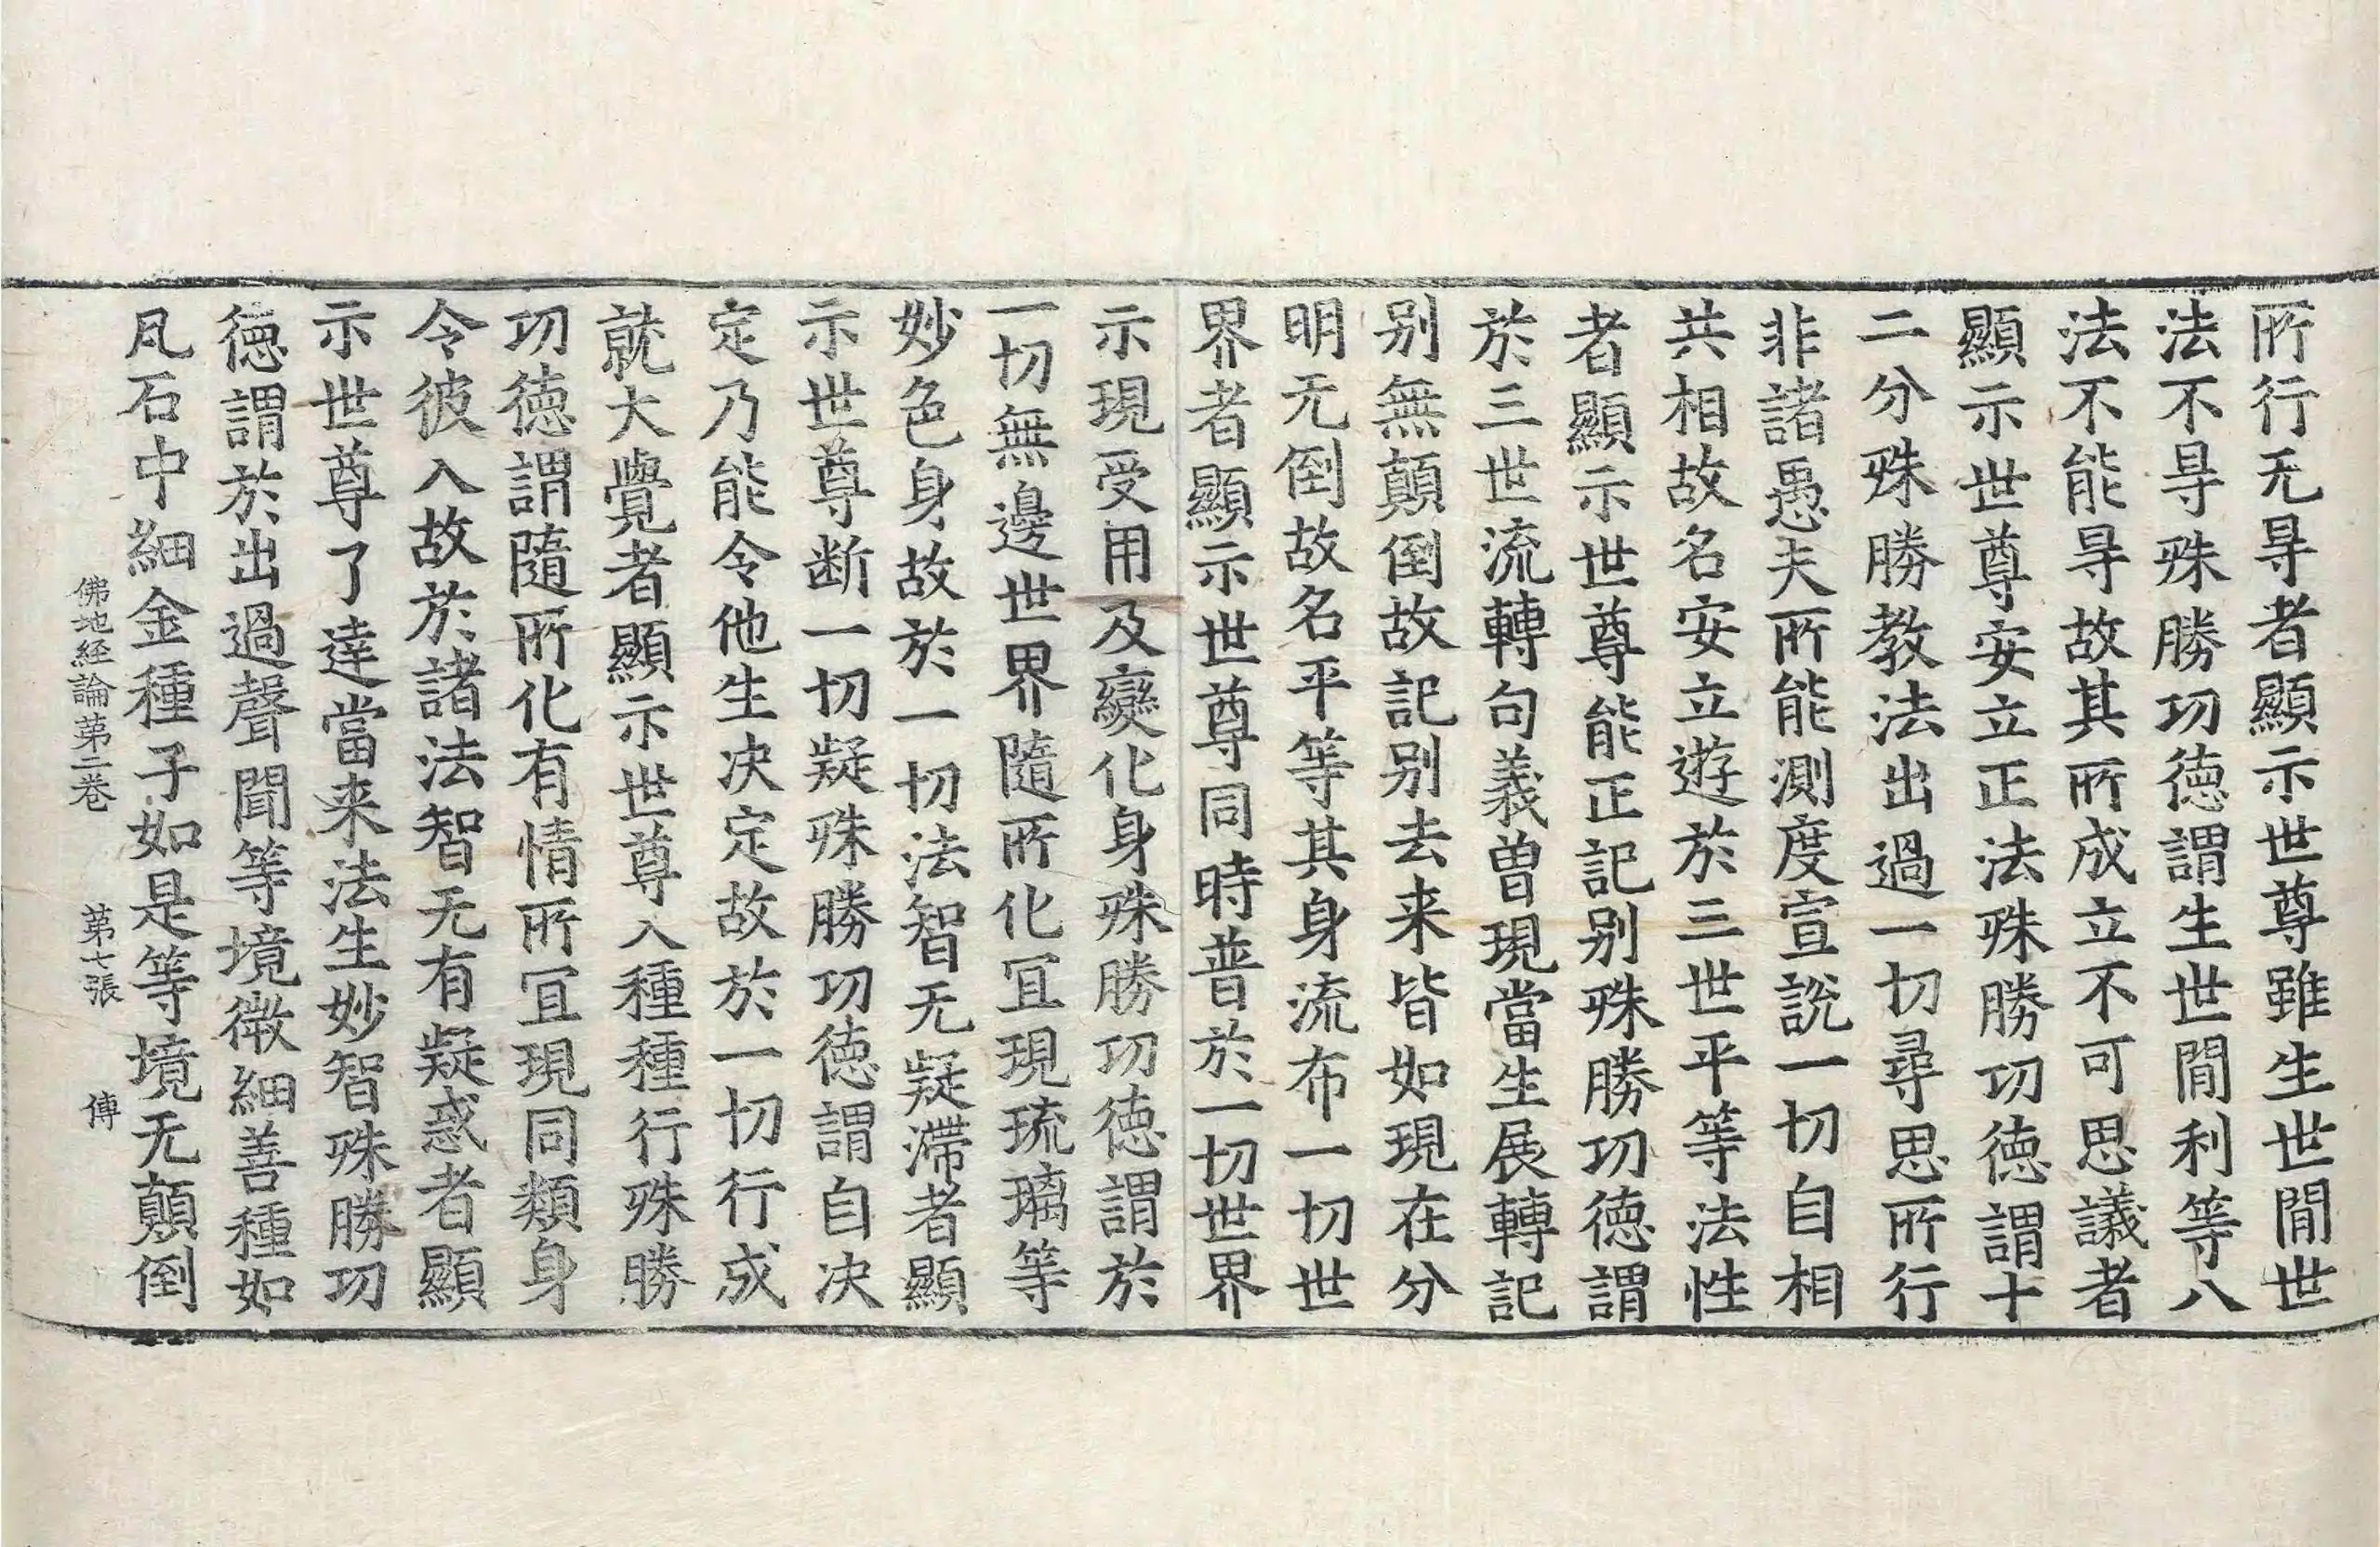 所行无㝵者顯示世尊雖生世閒世
法不㝵殊勝功德謂生世閒利等八
法不能㝵故其所成立不可思議者
顯示世尊安立正法殊勝功德謂十
二分殊勝教法出過一切尋思所行
非諸愚夫所能測度宣說一切自相
共相故名安立遊於三世平等法性
者顯示世尊能正記别殊勝功德謂
於三世流轉句義曾現當生展轉記
别無顛倒故記别去来皆如現在分
明无倒故名平等其身流布一切世
界者顯示世尊同時普於一切世界
示現受用及變化身殊勝功德謂於
一切無邊世界隨所化冝現琉璃等
妙色身故於一切法智无疑滯者顯
示世尊断一切疑殊勝功德謂自决
定乃能令他生决定故於一切行成
就大覺者顯示世尊入種種行殊勝
功德謂隨所化有情所冝現同類身
令彼入故於諸法智无有疑惑者顯
示世尊了達當来法生妙智殊勝功
德謂於出過聲聞等境微細善種如
凡石中細金種子如是等境无顛倒
佛地経論第二卷 第七張 傳